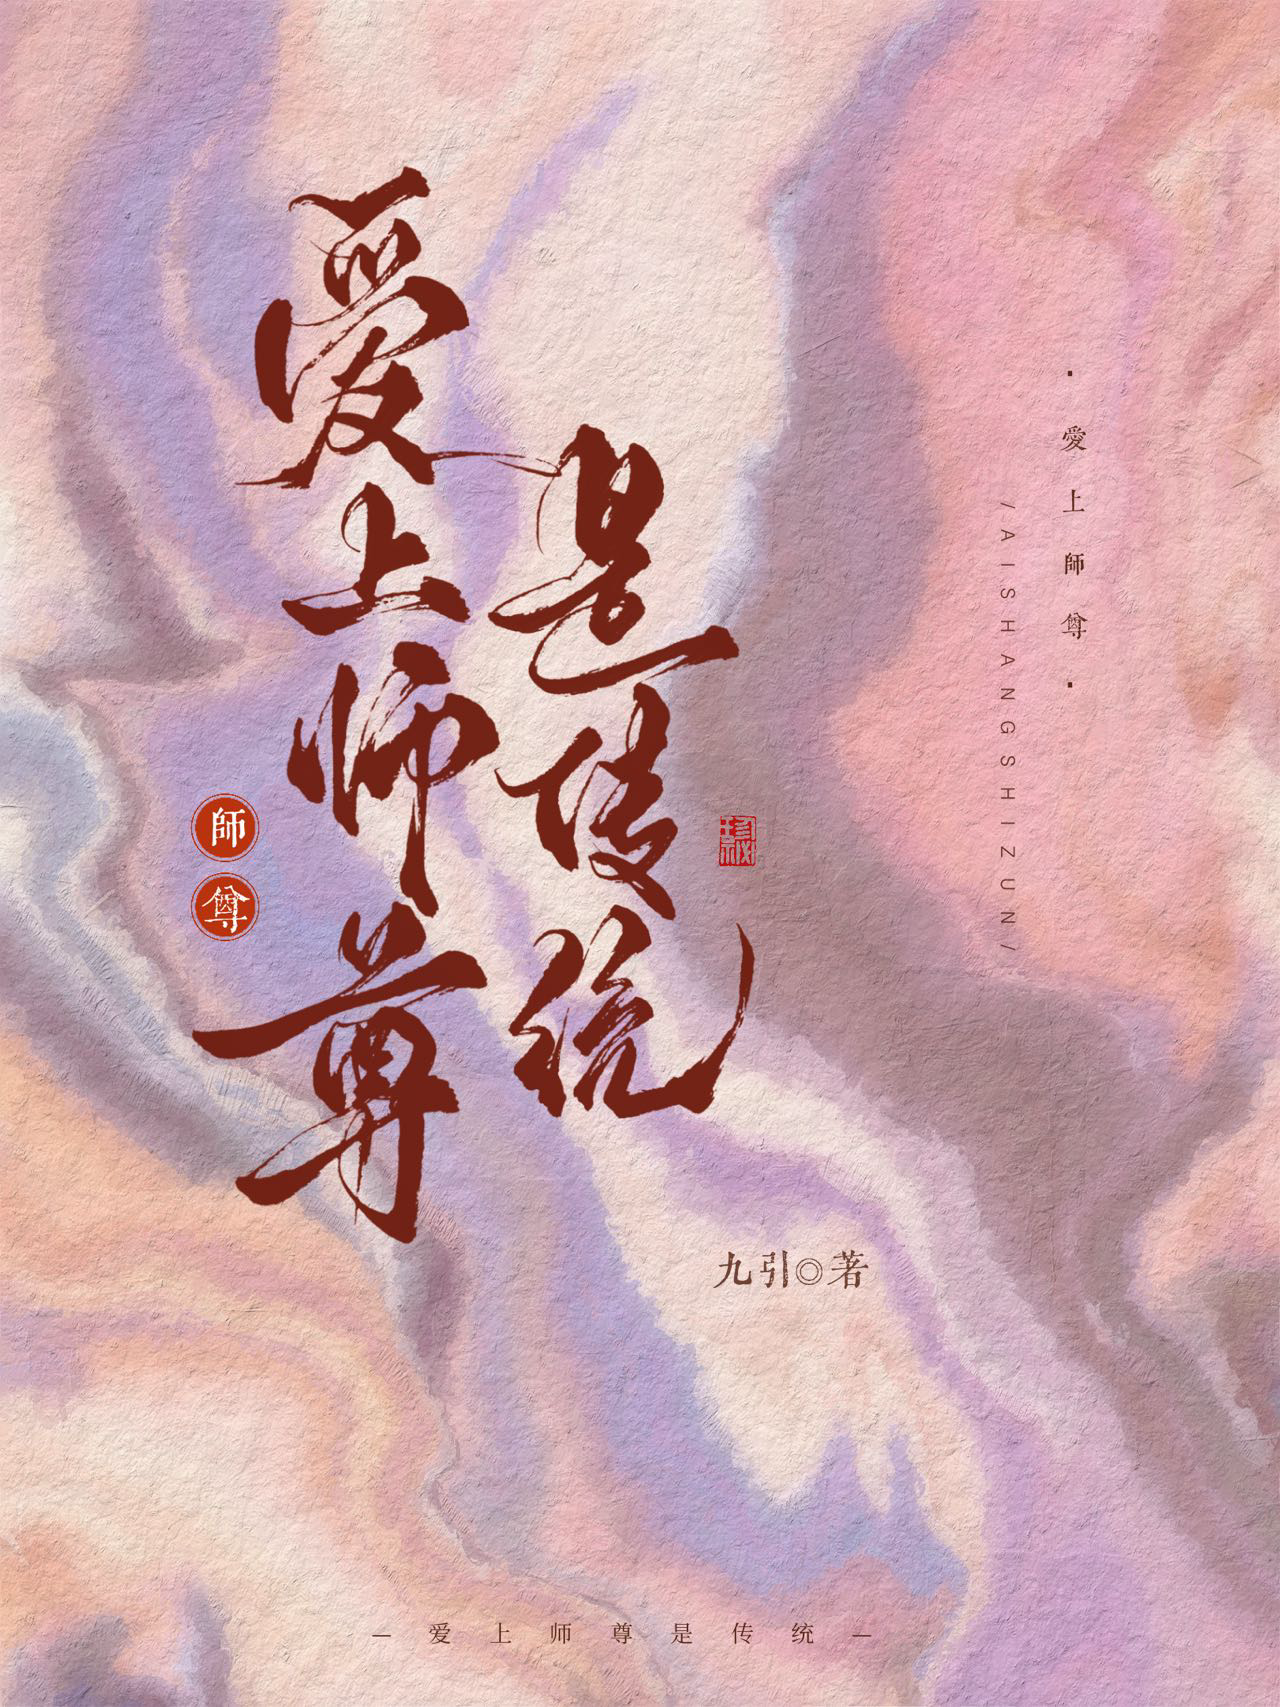 爱上师尊
是传统
師尊
·愛上師尊·
/AISHANGSHIZUN/
九引◎著
— 爱上师尊是传统 —